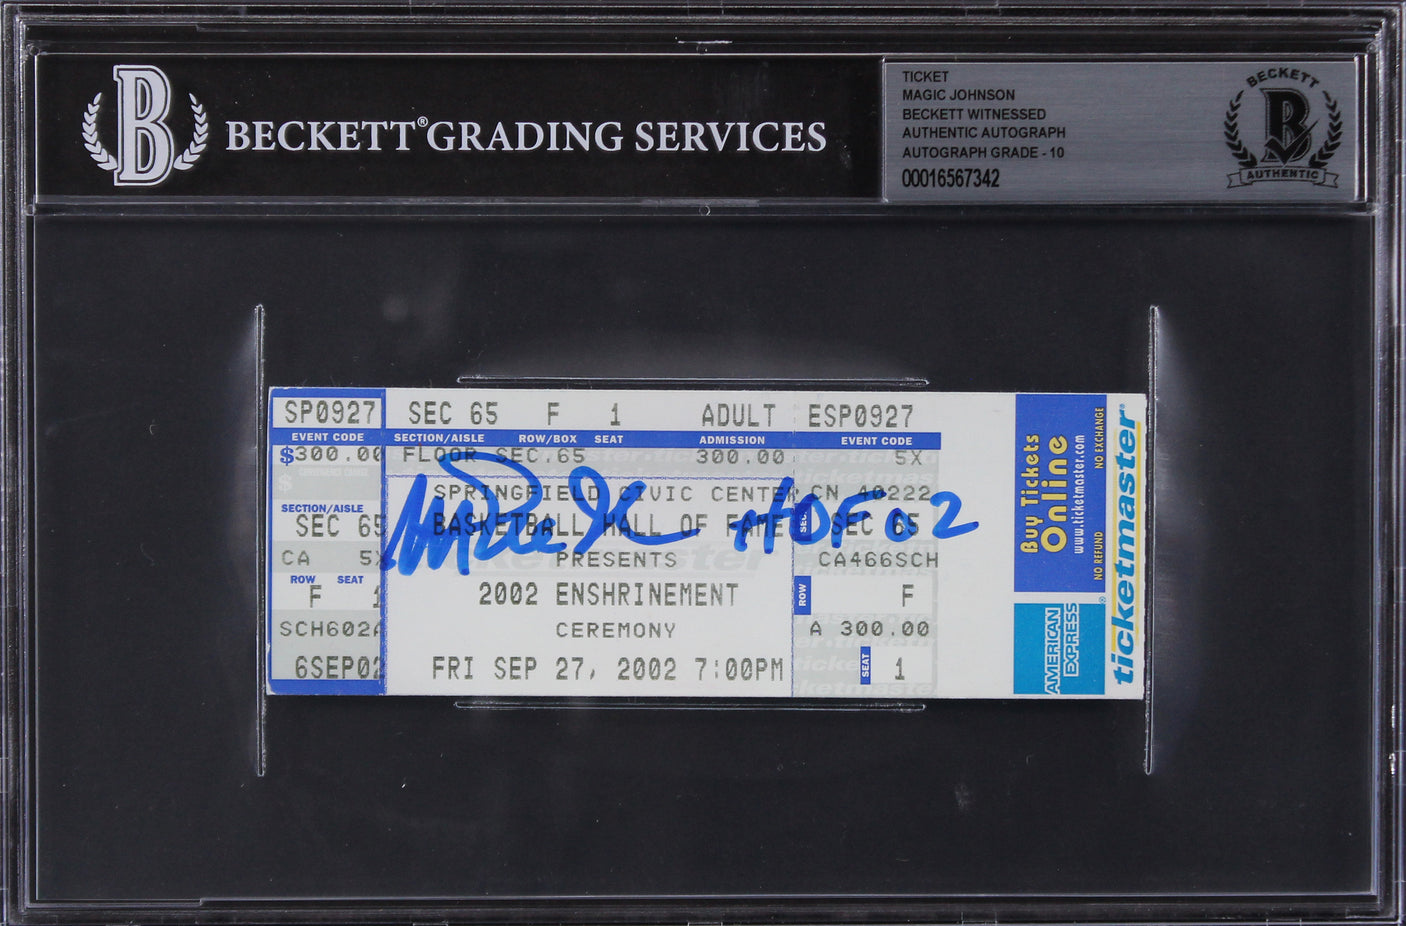 BECKETT® GRADING SERVICES
TICKET
MAGIC JOHNSON
BECKETT WITNESSED
AUTHENTIC AUTOGRAPH
AUTOGRAPH GRADE - 10
00016567342
BECKETT
B
AUTHENTIC
SP0927
EVENT CODE
$300.00
CONVENIENCE CHARGE
$
SECTION/AISLE
SEC 65
CA 5X
ROW SEAT
F 1
SCH602A
6SEP02
SEC 65 F 1 ADULT
SECTION/AISLE ROW/BOX SEAT ADMISSION
FLOOR SEC.65 300.00
SPRINGFIELD CIVIC CENTER
BASKETBALL HALL OF FAME
PRESENTS
2002 ENSHRINEMENT
CEREMONY
FRI SEP 27, 2002 7:00PM
HOF 02
ESP0927
EVENT CODE
5X
CN 40222
SEC 65
CA466SCH
ROW
F
A 300.00
SEAT
1
Buy Tickets
Online
www.ticketmaster.com
NO REFUND NO EXCHANGE
AMERICAN
EXPRESS
®
ticketmaster®